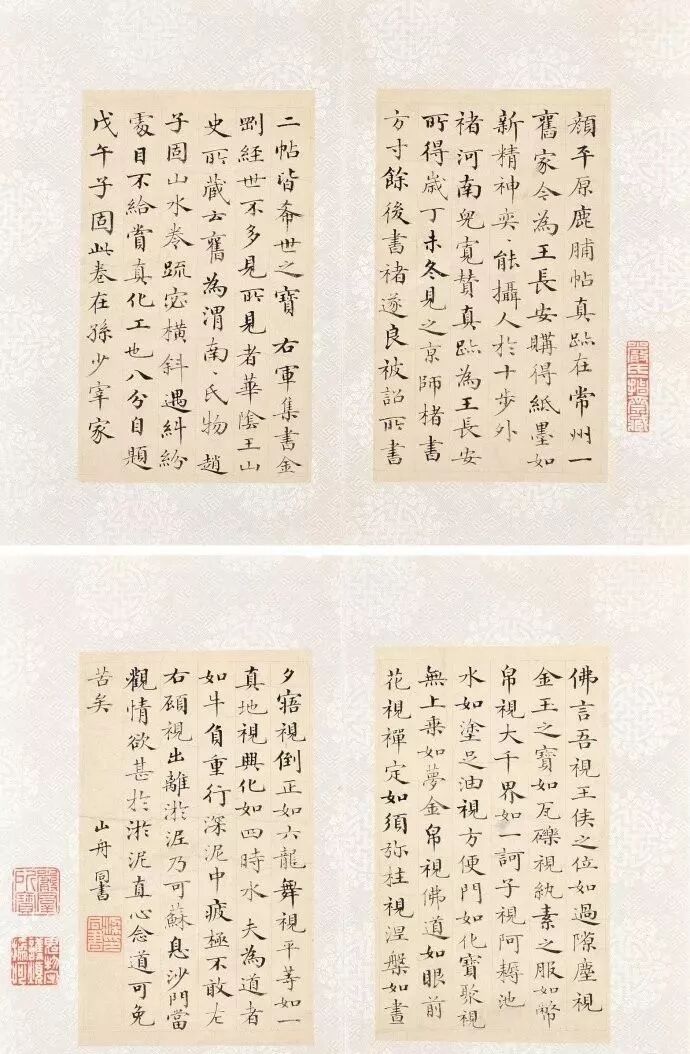 顔平原鹿脯帖真跡在常州一
舊家今為王長安購得紙墨如
新精神奕々能攝人於十步外
褚河南兒寛賛真跡為王長安
所得歲丁未冬見之京師楮書
方寸餘後書褚遂良被詔所書
二帖皆希世之寶右軍集書金
剛經世不多見所見者華陰王山
史所藏云舊為渭南々氏物趙
子固山水卷疏密橫斜遇糾紛
處目不給賞真化工也八分自題
戊午子固此卷在孫少宰家
佛言吾視王侯之位如過隙塵視
金玉之寶如瓦礫視紈素之服如幣
帛視大千界如一訶子視阿耨池
水如塗足油視方便門如化寶聚視
無上乗如夢金帛視佛道如眼前
花視禪定如須弥柱視涅槃如晝
夕寤視倒正如六龍舞視平等如一
真地視興化如四時水夫為道者
如牛負重行深泥中疲極不敢左
右顧視出離淤泥乃可蘇息沙門當
觀情欲甚於淤泥直心念道可免
苦矣
山舟同書